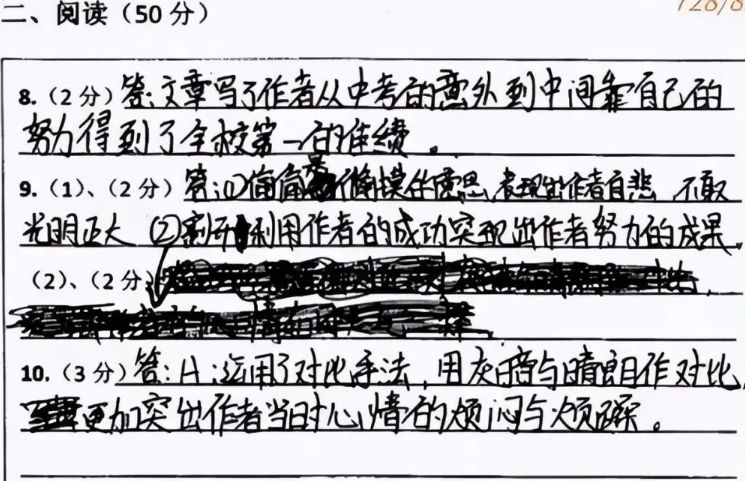 二、阅读（50 分）
128/8
8.（2 分）答：文章写了作者从中考的意外到中间靠自己的
努力得到了全校第一的佳绩。
9.（1）、（2 分）答：①偷偷 的意思，表现出作者自悲，不取
光明正大 ② 利用作者的成功突现出作者努力的成果。
（2）、（2 分）
10.（3 分）答：A：运用了对比手法，用灰暗与晴朗作对比，
更加突出作者当时心情的烦闷与烦躁。